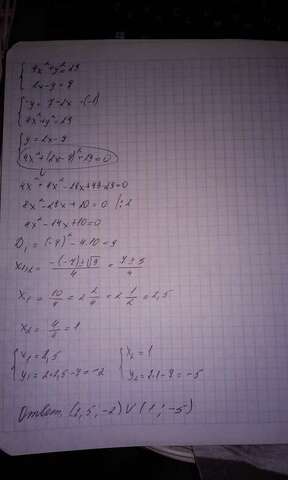 { 4x²+y²=29
2x-y=7
{ -y=7-2x ·(-1)
4x²+y²=29
{ y=2x-7
4x²+(2x-7)²-29=0
4x²+4x²-28x+49-29=0
8x²-28x+20=0 |:2
4x²-14x+10=0
D₁=(-7)²-4·10=9
x₁,₂= (-(-7)±√9)/4 = (7±3)/4
x₁= 10/4 = 2 2/4 = 2 1/2 = 2,5
x₂= 4/4 = 1
{ x₁=2,5 { x₂=1
y₁=2·2,5-7=-2 y₂=2·1-7=-5
Ответ: (2,5;-2) U (1;-5)